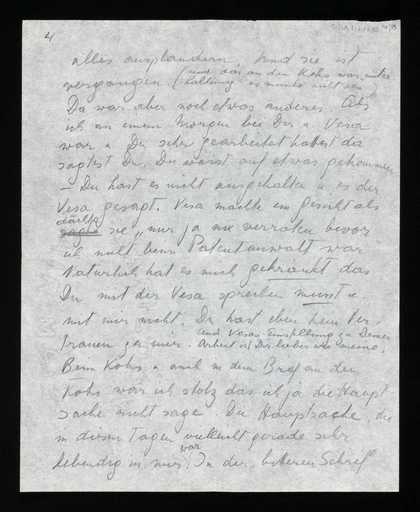 4
alles ausplaudern. Und sie ist
vergangen (und das an den Kohs war, unter
Haltung es musste nicht sein)
Da war aber noch etwas anderes. Als
ich an einem Morgen bei Dir u Vera
war u Du schon gearbeitet hattest da
sagtest Du, Du wärst auf etwas gekommen
– Du hast es nicht ausgehalten u. es der
Vesa gesagt. Vesa machte ein Gesicht als
dachte
sie „nur ja nix verraten bevor
ich nicht beim Patentanwalt war
Natürlich hat es mich gekränkt das
Du mit der Vesa sprechen musst u.
mit mir nicht. Du hast eben kein Ver
und Vesas Einstellung zu Deiner
trauen zu mir. Arbeit ist Dir lieber wie meine.
Beim Kohs u auch in dem Brief an den
Kohs war ich stolz das ich ja die Haupt
sache nicht sage. Die Hauptsache, die
in diesen Tagen vielleicht gerade sehr
lebendig in mir war. In der bitteren Schrei